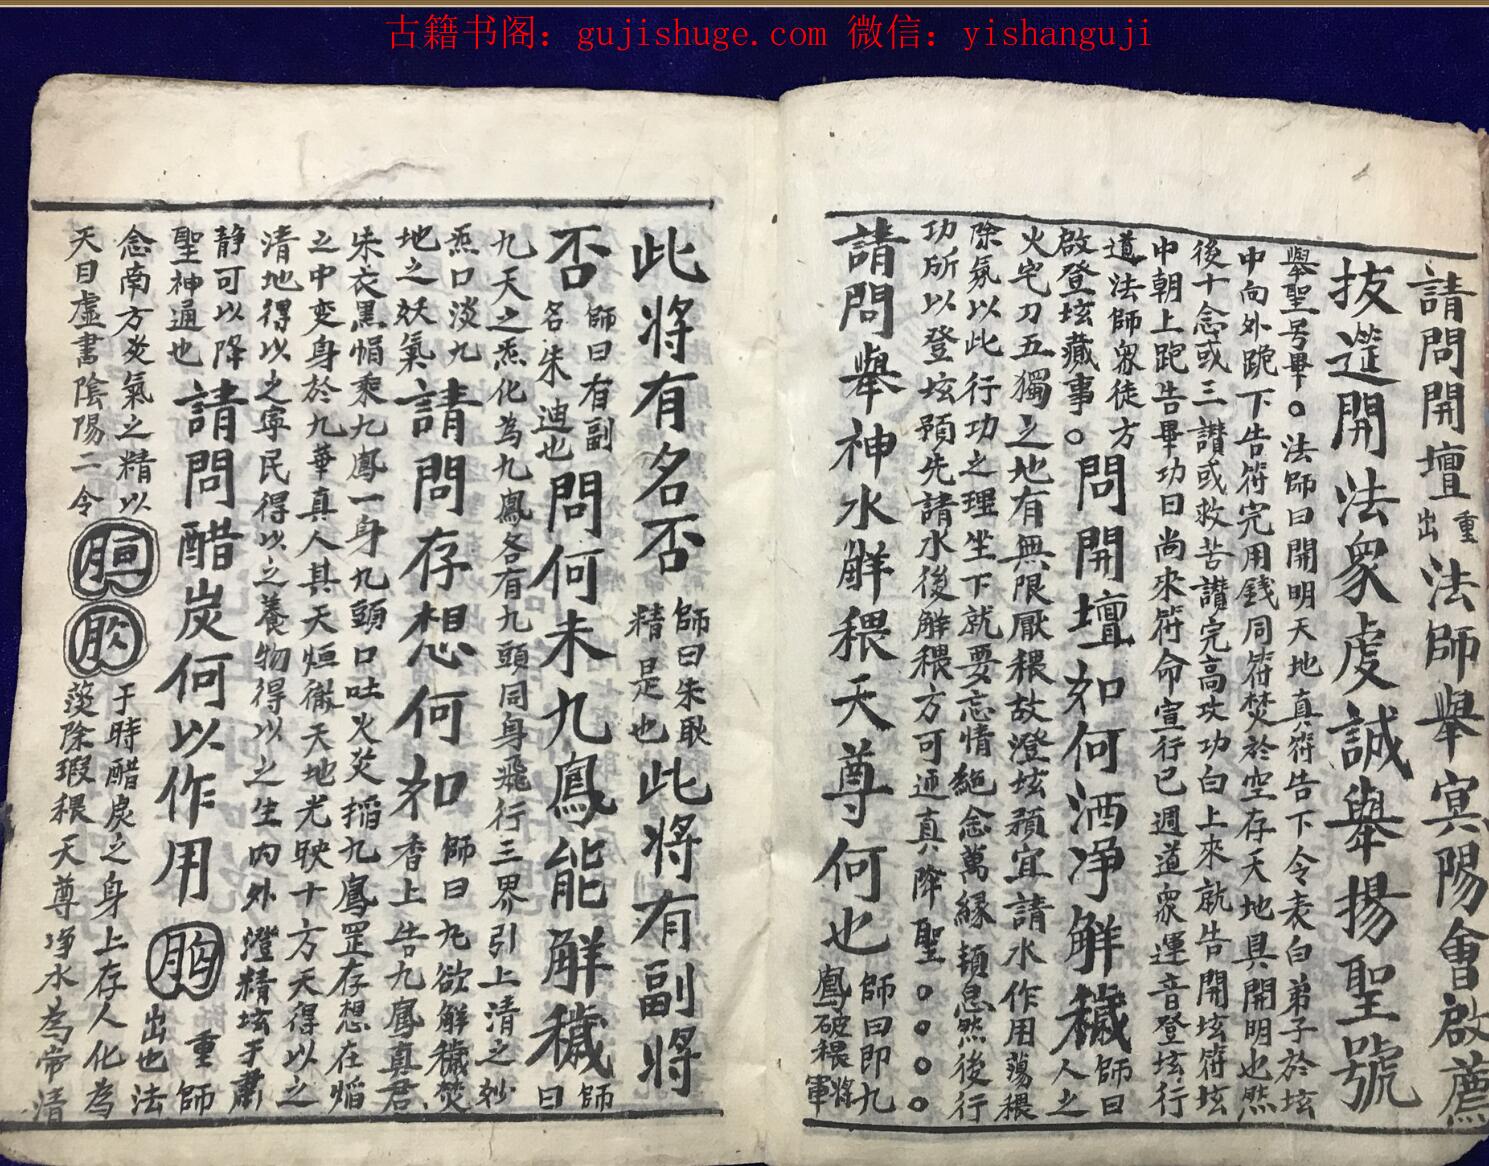 古籍书阁：gujishuge.com 微信：yishanguji
請問開壇重出法師舉冥陽會啟薦
抜選開法衆虔誠舉揚聖號
舉聖号畢。法師曰開明天地真符告下令表白弟子於坛
中向外跪下告符完用錢同符焚於空存天地具開明也然
後十念或三讃或救苦讃完高功功白上來就告開坛符坛
中朝上跪告畢功曰尚來符命宣行已週道衆運音登坛行
道法師衆徒方
啟登坛藏事。問開壇如何洒净解穢師曰人之
火宅刀五獨之地有無限厭穢故澄坛須宜請水作用蕩穢
除氛以此行功之理坐下就要忘情絶念萬緣頓息然後行
功所以登坛預先請水後解穢方可通真降聖。。。。
請問舉神水解穢天尊何也師曰即九鳳破穢將軍
此將有名否師曰朱耿精是也此將有副將
否師曰有副名朱迪也問何未九鳳能解穢師曰
九天之炁化為九鳳各有九頭同身飛行三界引上清之妙
炁口淡九
地之妖氣請問存想何如師曰九欲解穢焚香上告九鳳真君
朱衣黑㡓乘九鳳一身九頭口吐火炎招九鳳罡存想在焰
之中变身於九華真人其天烜徹天地光映十方天得以之
清地得以之寧民得以之養物得以之生内外澄精坛于肅
静可以降
聖神通也請問醋炭何以作用重出也師法
念南方炎氣之精以于時醋炭之身上存人化為
天目虛書陰陽二令蕩除瑕穢天尊净水為帝清